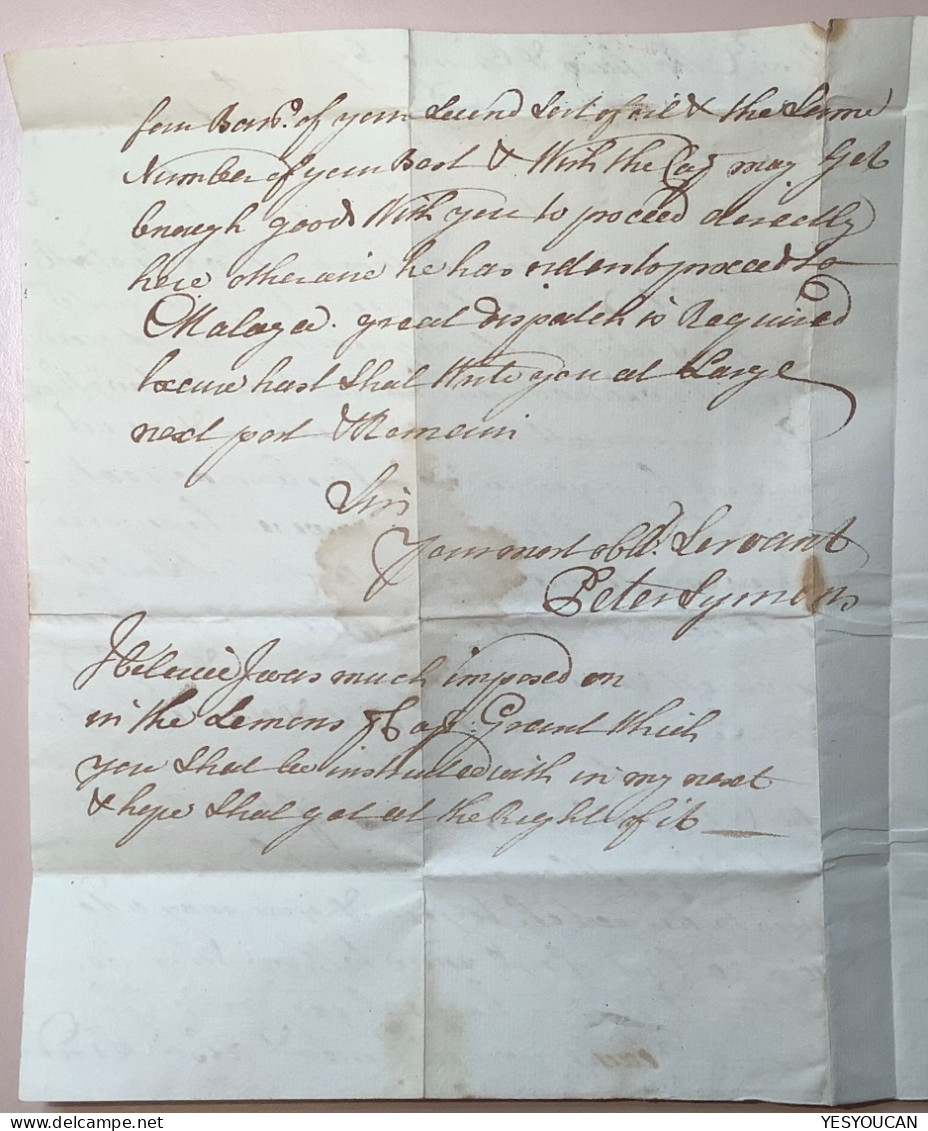 four Barr.s of your Second Sort of oil & the Same
Number of your Best & With the Cag may Get
Enough good With you to proceed derectly
here otherwise he has orders to proceed to
Malaga. great dispatch is Required
Excuse hast Shal Write you at Large
next post & Remain
Sir
Your most obd.t Servant
Peter Symons
I beleive I was much imposed on
in the Lemons Cap.t Grand Which
you Shal be instructed with in my next
& hope Shal get at the Right of it
YESYOUCAN